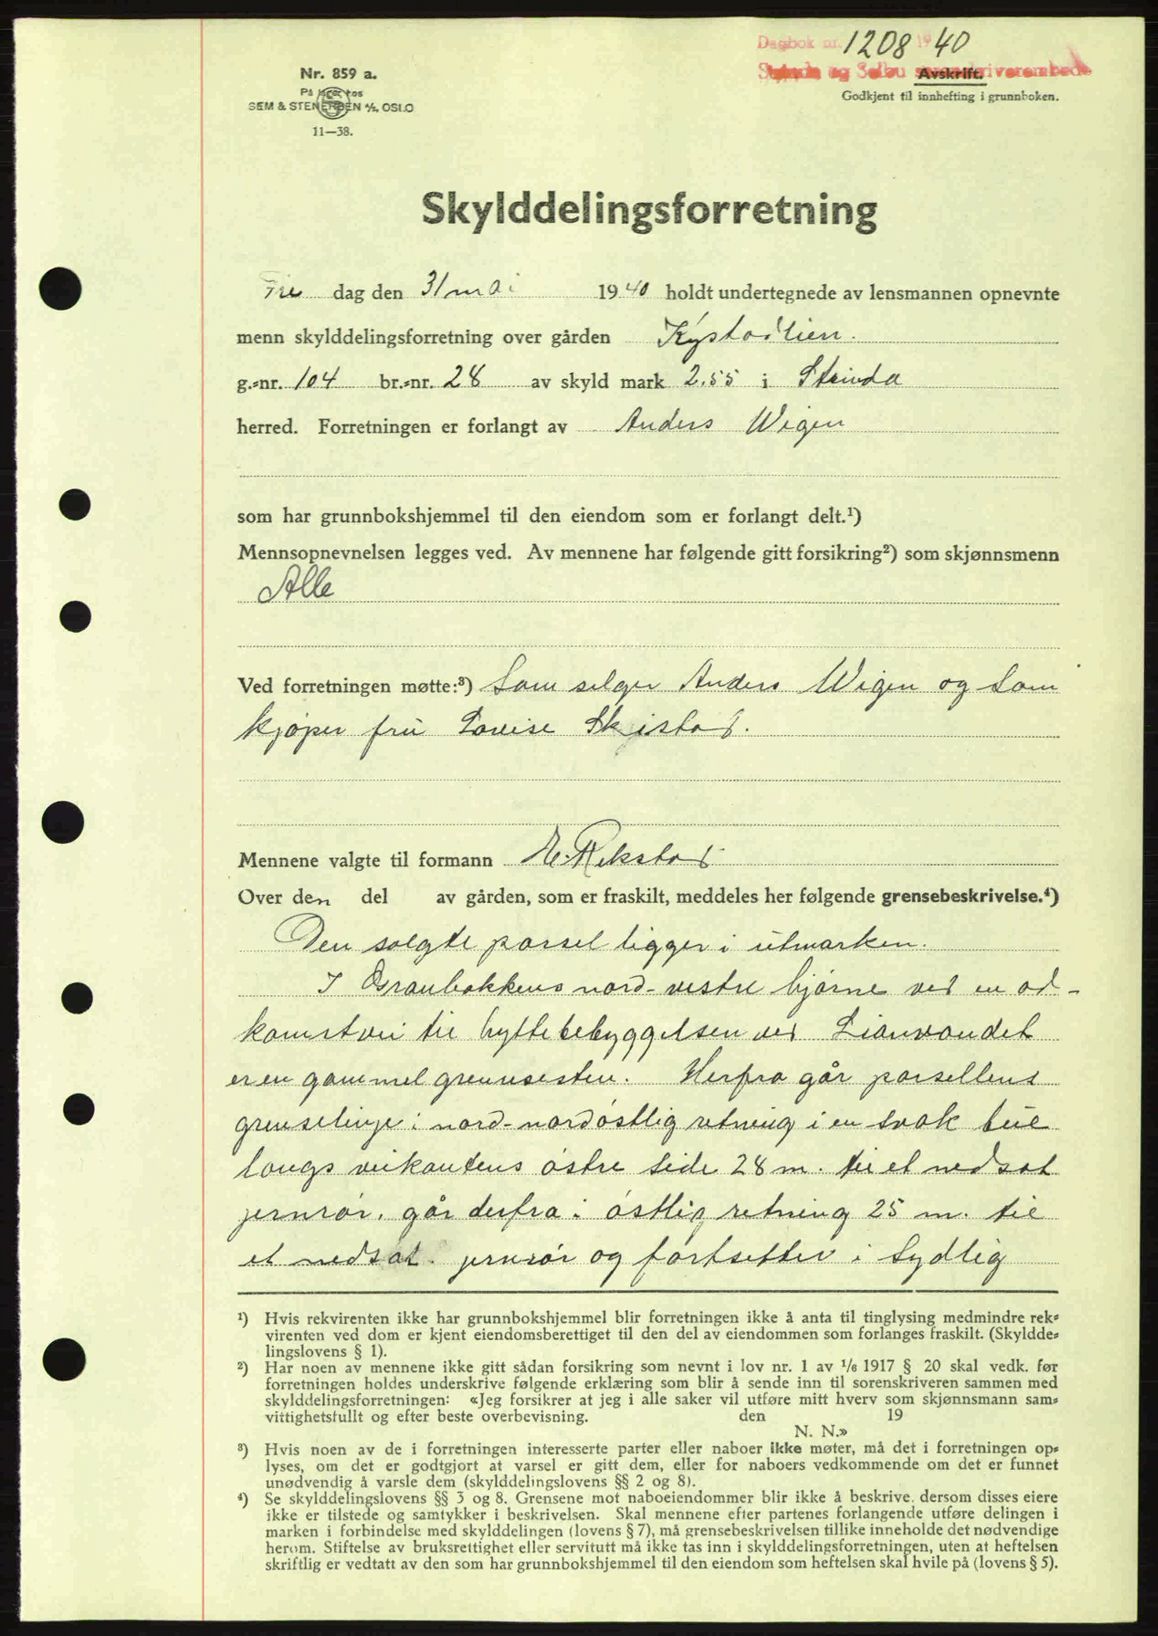 Dagbok nr. 1208 1940
Strinda og Selbu sorenskriverembede
Avskrift.
Godkjent til innhefting i grunnboken.
Nr. 859 a.
SEM & STENERSEN A/S, OSLO
11—38.
Skylddelingsforretning
Fre dag den 31 mai 1940 holdt undertegnede av lensmannen opnevnte
menn skylddelingsforretning over gården Kystadlien.
g.-nr. 104 br.-nr. 28 av skyld mark 2.55 i Strinda
herred. Forretningen er forlangt av Anders Wigen
som har grunnbokshjemmel til den eiendom som er forlangt delt.¹)
Mennsopnevnelsen legges ved. Av mennene har følgende gitt forsikring²) som skjønnsmenn
Alle
Ved forretningen møtte:³) Som selger Anders Wigen og som
kjøper fru Lovise Skjstad.
Mennene valgte til formann E. Rekstad
Over den del av gården, som er fraskilt, meddeles her følgende grensebeskrivelse.⁴)
Den solgte parsel ligger i utmarken.
I Granbakkens nord-vestre hjørne ved en ad-
komstvei til hyttebebyggelsen ved Lianvandet
er en gammel grensesten. Herfra går parsellens
grenselinje i nord-nordøstlig retning i en svak bue
langs veikantens østre side 28 m. til et nedsat
jernrør, går derfra i østlig retning 25 m. til
et nedsat jernrør og fortsetter i sydlig
¹) Hvis rekvirenten ikke har grunnbokshjemmel blir forretningen ikke å anta til tinglysing medmindre rek-
virenten ved dom er kjent eiendomsberettiget til den del av eiendommen som forlanges fraskilt. (Skyldde-
lingslovens § 1).
²) Har noen av mennene ikke gitt sådan forsikring som nevnt i lov nr. 1 av 1/6 1917 § 20 skal vedk. før
forretningen holdes underskrive følgende erklæring som blir å sende inn til sorenskriveren sammen med
skylddelingsforretningen: «Jeg forsikrer at jeg i alle saker vil utføre mitt hverv som skjønnsmann sam-
vittighetsfullt og efter beste overbevisning. den 19
N. N.»
³) Hvis noen av de i forretningen interesserte parter eller naboer ikke møter, må det i forretningen op-
lyses, om det er godtgjort at varsel er gitt dem, eller for naboers vedkommende om det er funnet
unødvendig å varsle dem (skylddelingslovens §§ 2 og 8).
⁴) Se skylddelingslovens §§ 3 og 8. Grensene mot naboeiendommer blir ikke å beskrive, dersom disses eiere
ikke er tilstede og samtykker i beskrivelsen. Skal mennene efter partenes forlangende utføre delingen i
marken i forbindelse med skylddelingen (lovens § 7), må grensebeskrivelsen tillike inneholde det nødvendige
herom. Stiftelse av bruksrettighet eller servitutt må ikke tas inn i skylddelingsforretningen, uten at heftelsen
skriftlig er vedtatt av den som har grunnbokshjemmel til den eiendom som heftelsen skal hvile på (lovens § 5).